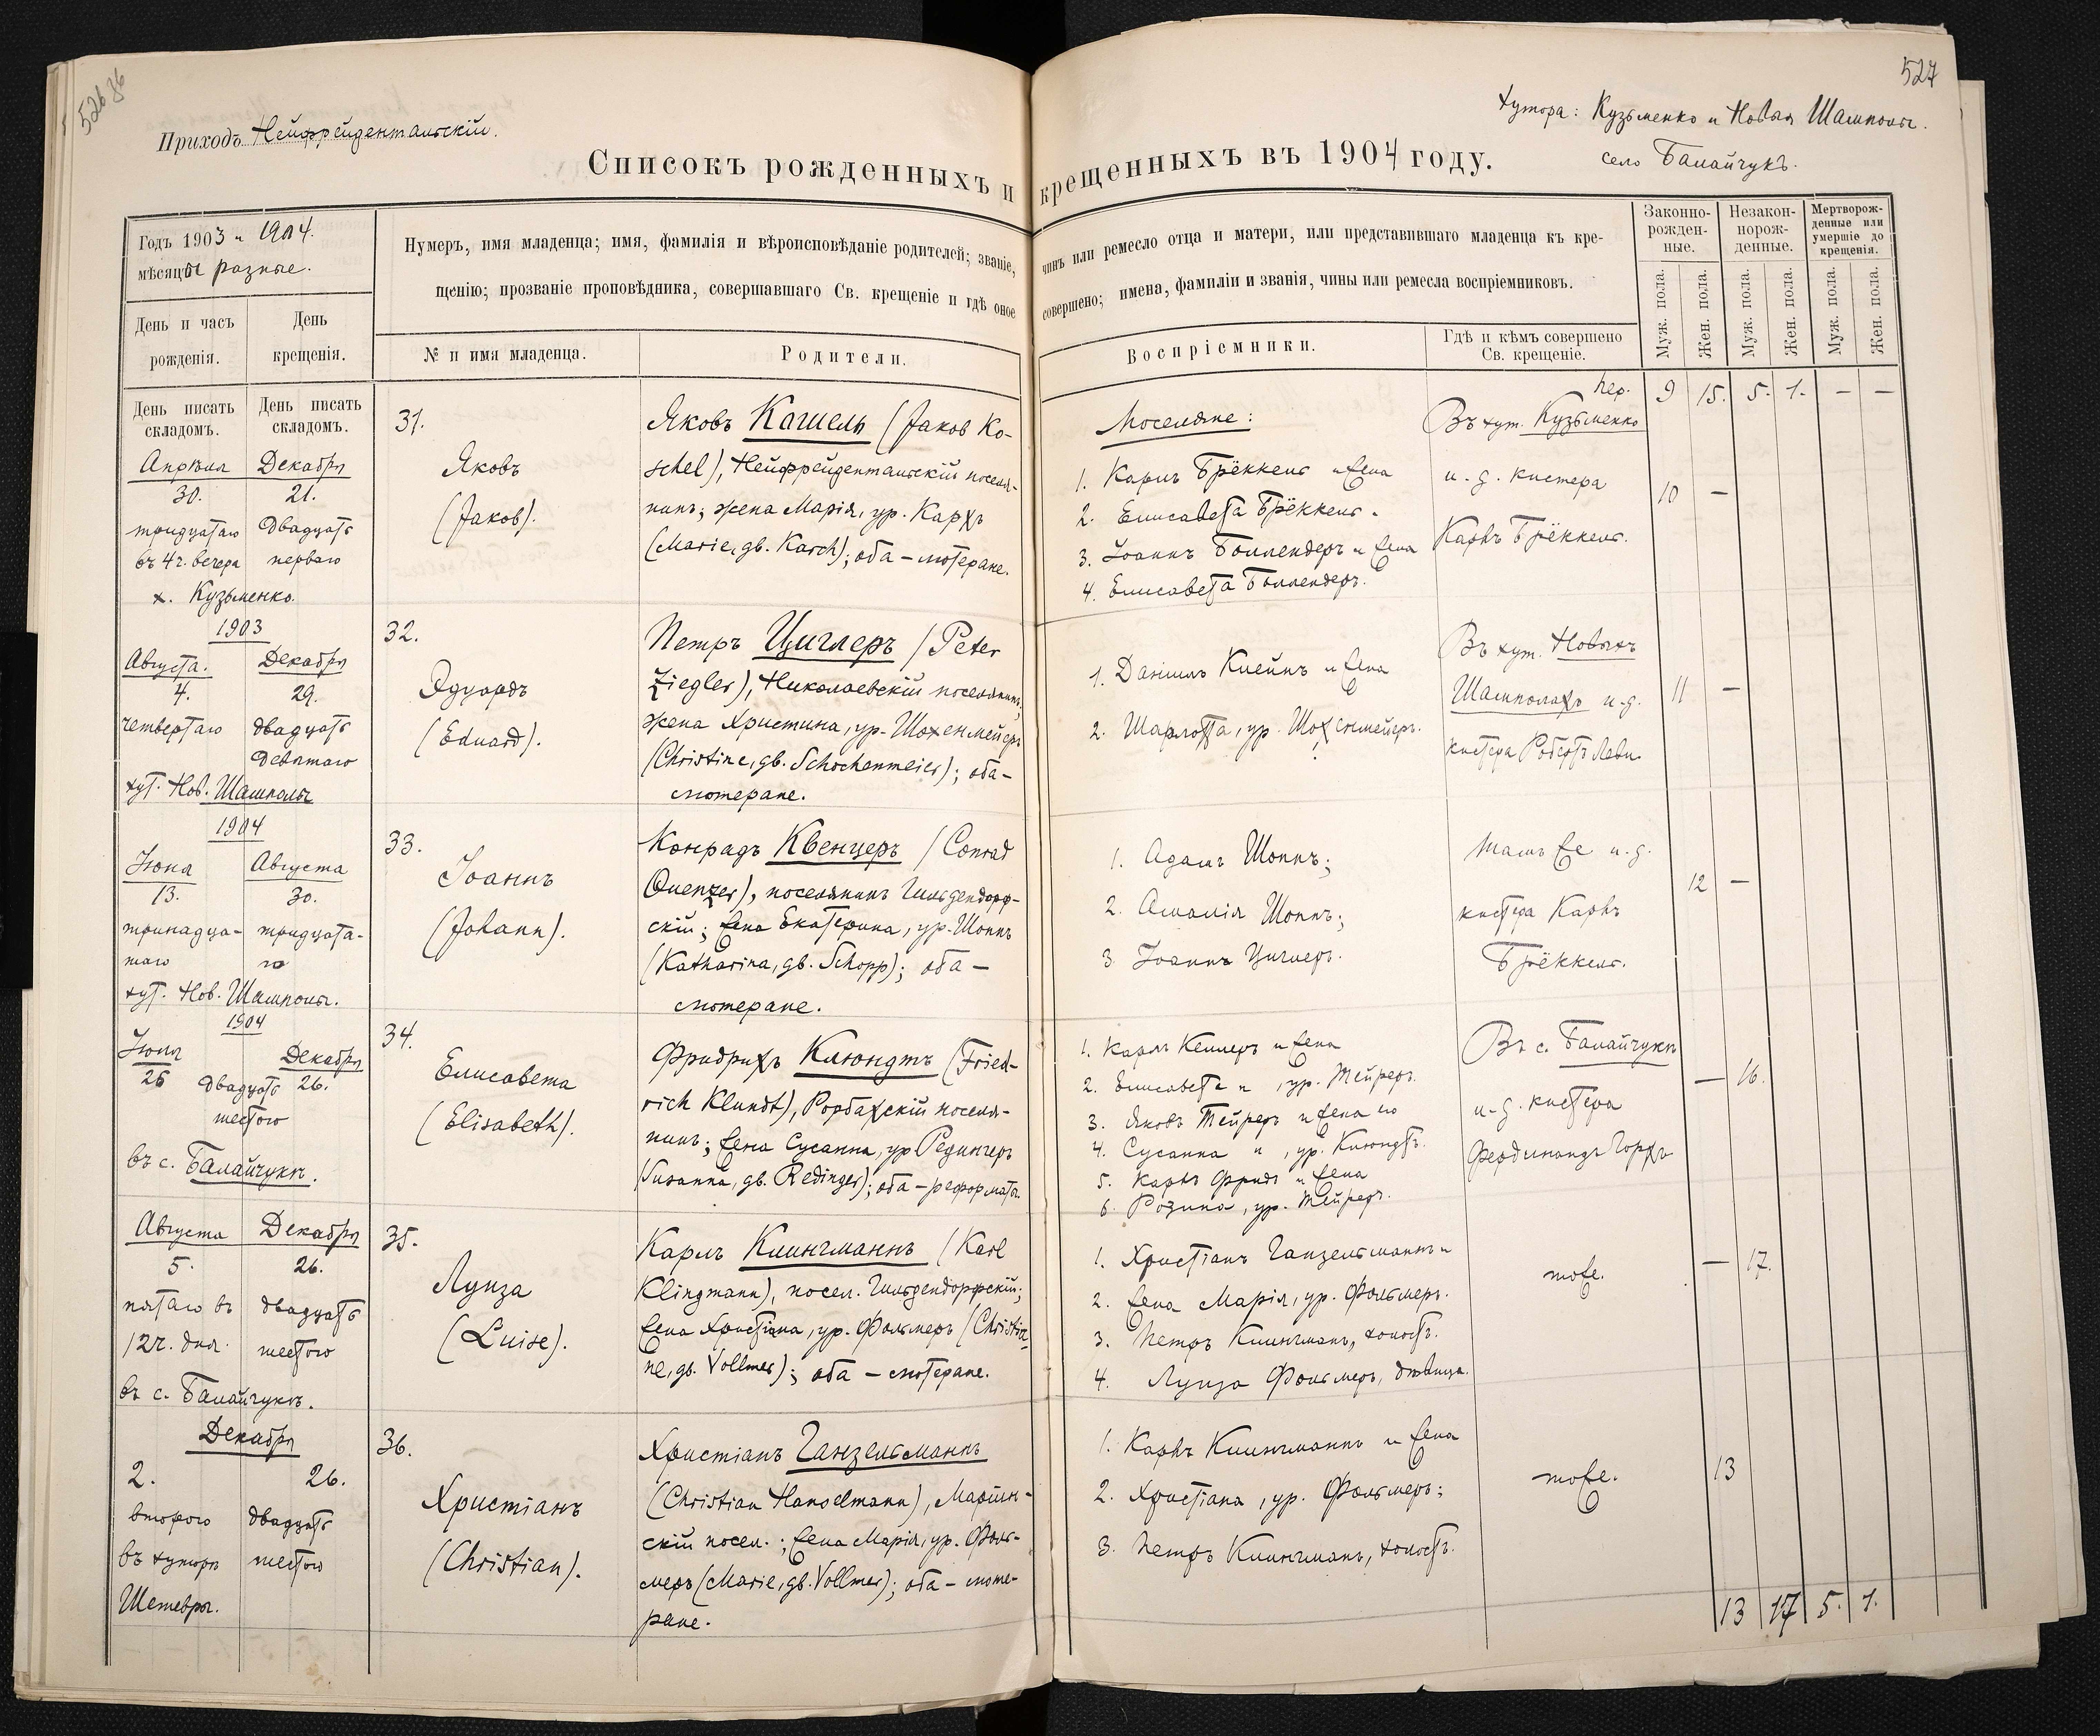 526 об
527
Приходъ Нейфрейдентальскій.
хутора: Кузьменко и Новыя Шамполы.
село Балайчукъ.
Списокъ рожденныхъ и крещенныхъ въ 1904 году.
Годъ 1903 и 1904.
мѣсяцы разные.
Нумеръ, имя младенца; имя, фамилія и вѣроисповѣданіе родителей; званіе, чинъ или ремесло отца и матери, или представившаго младенца къ кре-
щенію; прозваніе проповѣдника, совершавшаго Св. крещеніе и гдѣ оное совершено; имена, фамиліи и званія, чины или ремесла воспріемниковъ.
Законно-
рожден-
ные.
Незакон-
норож-
денные.
Мертворож-
денные или
умершіе до
крещенія.
День и часъ
рожденія.
День
крещенія.
№ и имя младенца.
Родители.
Воспріемники.
Гдѣ и кѣмъ совершено
Св. крещеніе.
Муж. пола.
Жен. пола.
Муж. пола.
Жен. пола.
Муж. пола.
Жен. пола.
День писать
складомъ.
День писать
складомъ.
пер. 9 15. 5. 1. — —
Апрѣля
30.
тридцатаго
въ 4 ч. вечера
х. Кузьменко.
Декабря
21.
двадцать
перваго
31.
Яковъ
(Jakob).
Яковъ Кашель (Jakob Ko-
schel), Нейфрейдентальскій поселя-
нинъ; жена Марія, ур. Кархъ
(Marie, gb. Karch); оба – лютеране.
Поселяне:
1. Карлъ Брёккель и жена
2. Елисавета Брёккель.
3. Іоаннъ Боллендеръ и жена
4. Елисавета Боллендеръ.
Въ хут. Кузьменко
и. д. кистера
Карлъ Брёккель.
10 —
1903
Августа.
4.
четвертаго
хут. Нов. Шамполы
Декабря
29.
двадцать
девятаго
32.
Эдуардъ
(Eduard).
Петръ Циглеръ (Peter
Ziegler), Николаевскій поселянинъ;
жена Христина, ур. Шохенмейеръ
(Christine, gb. Schochenmeier); оба –
лютеране.
1. Даніилъ Клейнъ и жена
2. Шарлотта, ур. Шохенмейеръ.
Въ хут. Новыхъ
Шамполахъ и. д.
кистера Робертъ Леви
11 —
1904
Іюня
13.
тринадца-
таго
хут. Нов. Шамполы.
Августа
30.
тридцата-
го
33.
Іоаннъ
(Johann).
Конрадъ Квенцеръ (Conrad
Quenzer), поселянинъ Гильдендорф-
скій; жена Екатерина, ур. Шоппъ
(Katharina, gb. Schopp); оба –
лютеране.
1. Адамъ Шоппъ;
2. Амалія Шоппъ;
3. Іоаннъ Циглеръ.
тамъ же и. д.
кистера Карлъ
Брёккель.
12 —
1904
26
двадцать
шестого
въ с. Балайчукѣ.
Декабря
26.
34.
Елисавета
(Elisabeth).
Фридрихъ Клюндтъ (Fried-
rich Klundt), Рорбахскій поселя-
нинъ; жена Сусанна, ур. Редингеръ
(Susanna, gb. Redinger); оба – реформаты.
1. Карлъ Келлеръ и жена
2. Елисавета, ур. Тейреръ.
3. Яковъ Тейреръ и жена его
4. Сусанна, ур. Клюндтъ.
5. Карлъ Фридъ и жена
6. Розина, ур. Тейреръ.
Въ с. Балайчукѣ
и. д. кистера
Фердинандъ Горхъ
— 16.
Августа
5.
пятаго въ
12 ч. дня.
въ с. Балайчукѣ.
Декабря
26.
двадцать
шестого
35.
Луиза
(Luise).
Карлъ Клингманнъ (Karl
Klingmann), посел. Гильдендорфскій;
жена Христіана, ур. Фольмеръ (Christia-
ne, gb. Vollmer); оба – лютеране.
1. Христіанъ Ганзельманнъ и
2. жена Марія, ур. Фольмеръ.
3. Петръ Клингманъ, холостъ.
4. Луиза Фольмеръ, дѣвица.
тоже.
— 17.
Декабря
2.
второго
въ хуторѣ
Шетевры.
26.
двадцать
шестого
36.
Христіанъ
(Christian).
Христіанъ Ганзельманнъ
(Christian Hanselmann), Мартин-
скій посел.; жена Марія, ур. Фоль-
меръ (Marie, gb. Vollmer); оба – люте-
ране.
1. Карлъ Клингманнъ и жена
2. Христіана, ур. Фольмеръ;
3. Петръ Клингманъ, холостъ.
тоже.
13
13 17 5. 1.